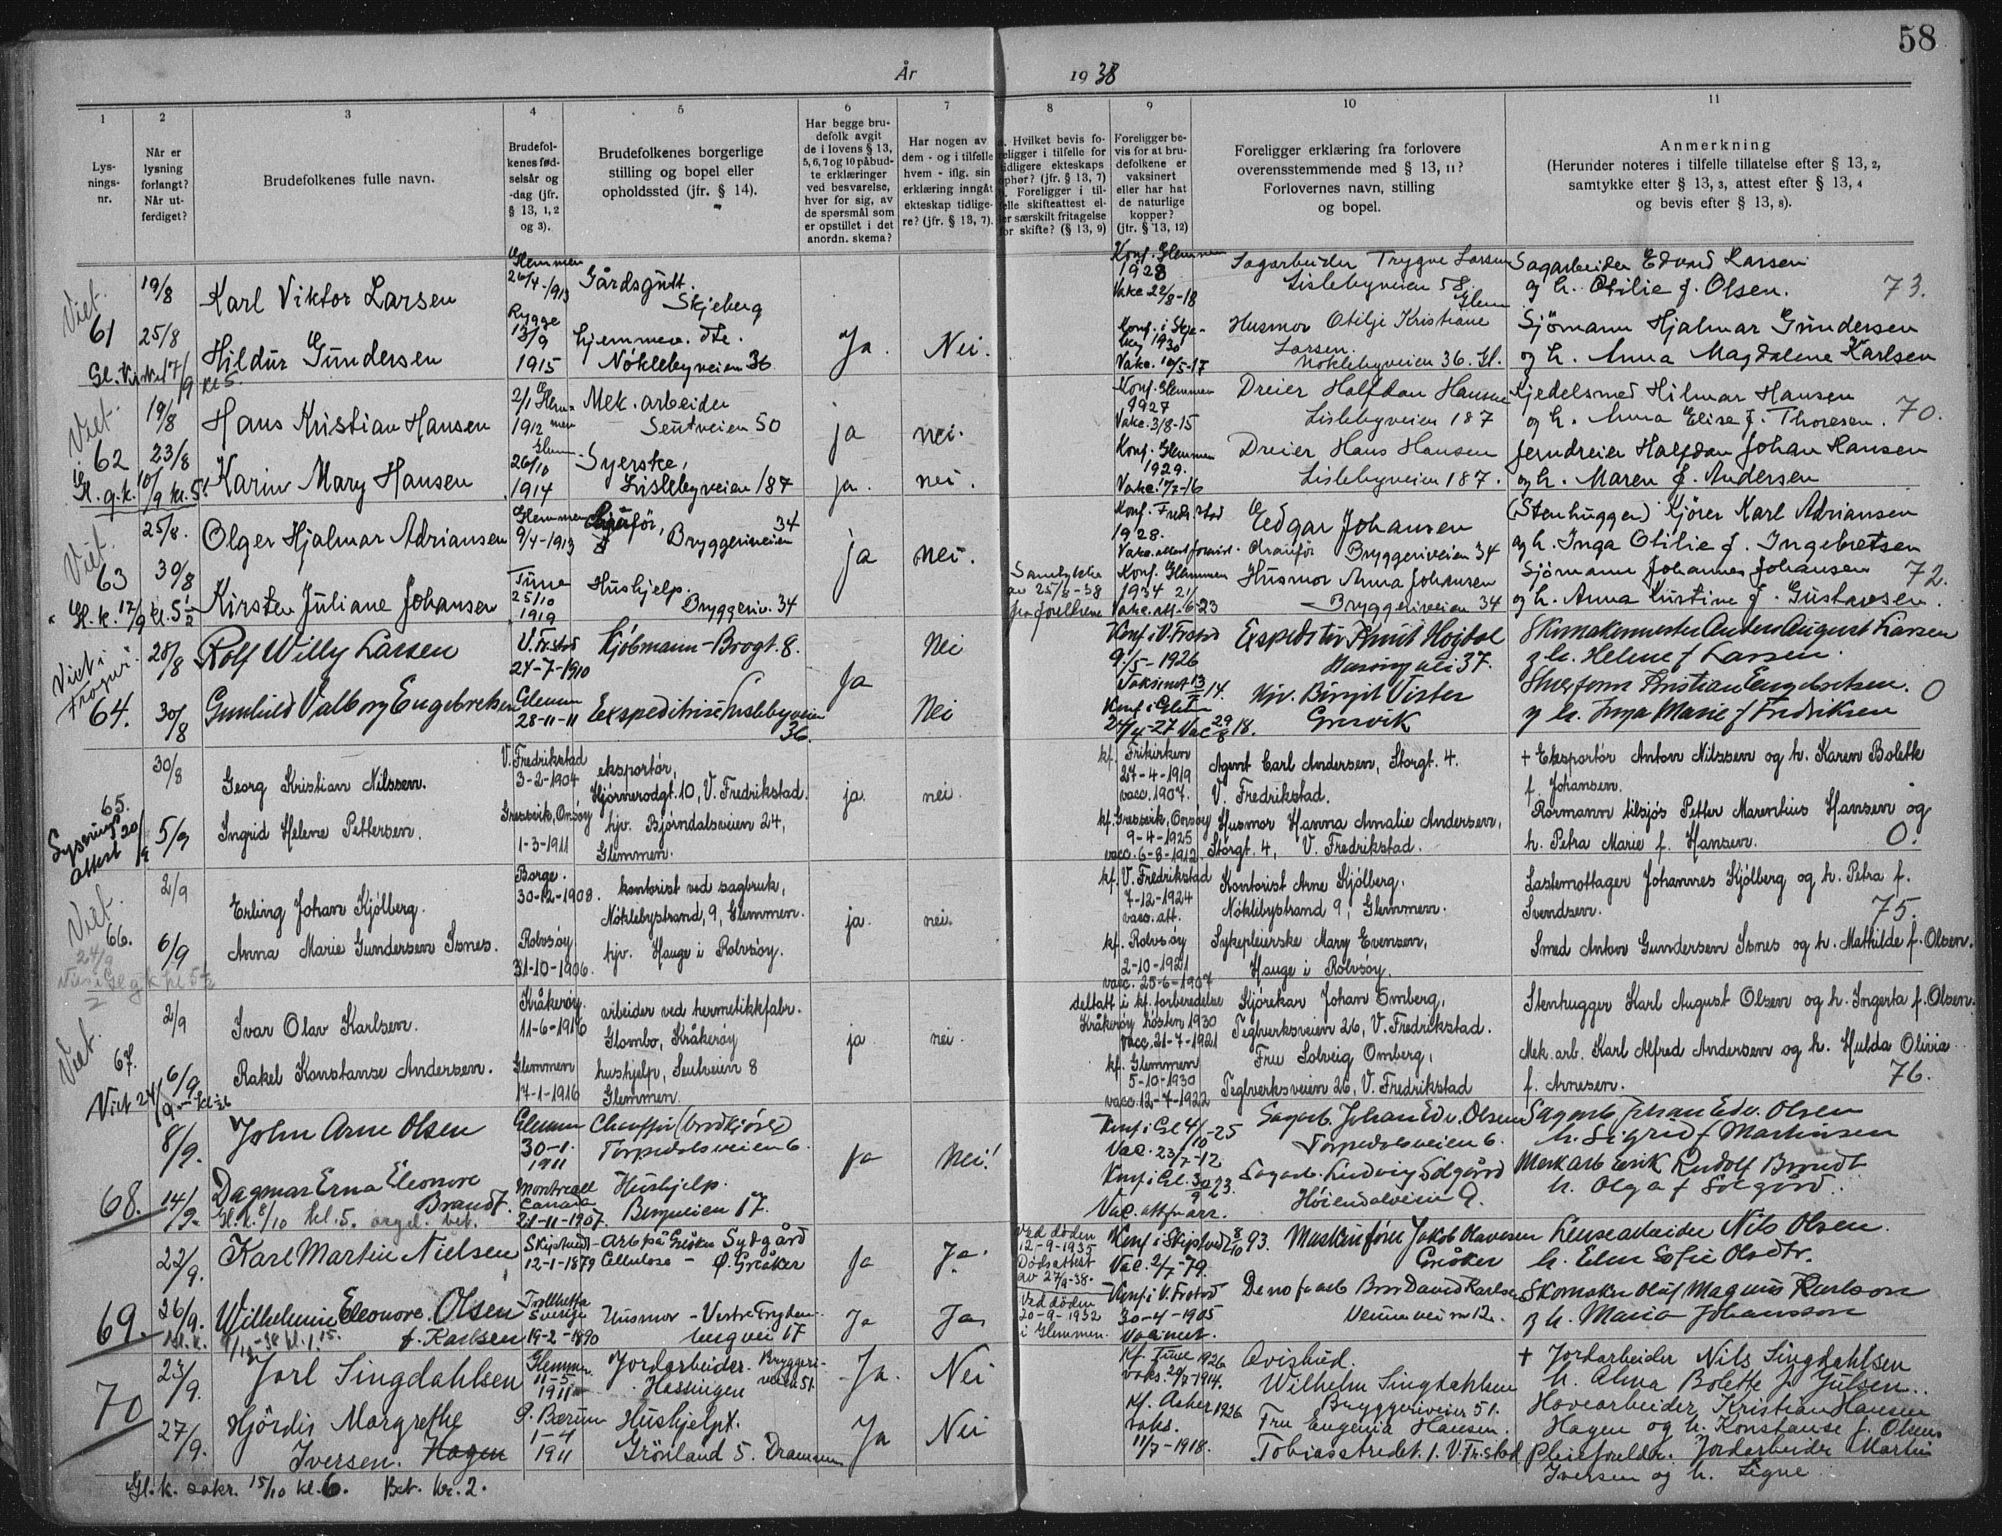 58
År 1938
1
2
3
4
5
6
7
8
9
10
11
Lys-
nings-
nr.
Når er
lysning
forlangt?
Når ut-
ferdiget?
Brudefolkenes fulle navn.
Brudefol-
kenes fød-
selsår og
-dag (jfr.
§ 13, 1, 2
og 3).
Brudefolkenes borgerlige
stilling og bopel eller
opholdssted (jfr. § 14).
Har begge bru-
defolk avgit
de i lovens § 13,
5, 6, 7 og 10 påbud-
te erklæringer
ved besvarelse,
hver for sig, av
de spørsmål som
er opstillet i det
anordn. skema?
Har nogen av
dem - og i tilfelle
hvem - iflg. sin
erklæring inngåt
ekteskap tidlige-
re? (jfr. § 13, 7).
a. Hvilket bevis fo-
religger i tilfelle for
tidligere ekteskaps
ophør? (jfr. § 13, 7)
Foreligger i til-
felle skifteattest el-
ler særskilt fritagelse
for skifte? (§ 13, 9)
Foreligger be-
vis for at bru-
defolkene er
vaksinert
eller har hat
de naturlige
kopper?
(jfr. § 13, 12)
Foreligger erklæring fra forlovere
overensstemmende med § 13, 11?
Forlovernes navn, stilling
og bopel.
Anmerkning
(Herunder noteres i tilfelle tillatelse efter § 13, 2,
samtykke efter § 13, 3, attest efter § 13, 4
og bevis efter § 13, 8).
Viet.
61
19/8
25/8
Karl Viktor Larsen
Glemmen
26/4-1913
Gårdsgutt.
Skjeberg
Konf. Glemmen
1928
Vakc 22/8-18
Sagarbeider Trygve Larsen
Lislebyveien 58.
Glem
Sagarbeider Edvard Larsen
og h. Otilie f. Olsen.
73.
Hildur Gundersen
Rygge
13/9
1915
hjemmev. dtr.
Nøklebyveien 36
Ja.
Nei.
Konf. i Skje-
berg 1930
Vakc. 10/5-17
Husmor Otilje Kristiane
Larsen.
Nøklebyveien 36. Gl.
Sjømann Hjalmar Gundersen
og h. Anna Magdalene Karlsen
17/9 kl 5.
Viet.
62
19/8
23/8
Hans Kristian Hansen
2/1 Glem-
1912 men
Mek. arbeider
Seutveien 50
ja
nei.
Konf. Glemmen
1927
Vakc. 3/8-15
Dreier Halfdan Hansen
Lislebyveien 187
Kjedelsmed Hilmar Hansen
og h. Anna Elise f. Thoresen.
70.
Karin Mary Hansen
Glem.
26/10
1914
Syerske,
Lislebyveien 187
ja.
nei.
Konf. Glemmen
1929.
Vakc. 17/7-16
Dreier Hans Hansen
Lislebyveien 187.
Jerndreier Halfdan Johan Hansen
og h. Maren f. Andersen
10/9 kl. 5!
Viet.
63
25/8.
30/8
Olger Hjalmar Adriansen
Glemmen
9/4-1913
Bryggeriveien
34
ja
nei.
Konf. Fredr.stad
1928.
Edgar Johansen
Bryggeriveien 34
(Stenhugger) Kjører Karl Adriansen
og h. Inga Otilie f. Ingebretsen
72.
Gl. k. 17/9 kl. 5½
Kirsten Juliane Johansen
Tune
25/10
1919
Hushjelp.
Bryggeriv. 34
Samtykke
av 25/8-38
fra forelrene
Konf. Glemmen
1934
Husmor Anna Johansen
Bryggeriveien 34
Sjømann Johannes Johansen
og h. Anna Kristine f. Gustavsen.
Viet i
64.
28/8
30/8
Rolf Willy Larsen
V. Fr.stad
24-7-1910
Kjøbmann - Brogt. 8.
Nei
Konf i V. Frstad
9/5-1926
Ekspeditør Knut Højdal
37
Skomakermester Anders August Larsen
og h. Helene f Larsen.
Gunhild Valborg Engebretsen
Glemm
28-11-11
Ekspeditrise Lislebyveien
36.
Ja
Nei
Hjv. Birgit Vister
Gresvik
Kristian Engebretsen.
og h. Inga Marie f Fredriksen
0
65.
30/8
5/9
Georg Kristian Nilssen.
V. Fredrikstad
3-2-1904
eksportør,
Hjørnerødgt. 10, V. Fredrikstad.
ja.
nei.
kf. Frikirken
27-4-1919
vacc. 1907.
Agent Carl Andersen, Storgt. 4.
V. Fredrikstad.
+ Eksportør Anton Nilssen og h. Karen Bolette
f. Johansen.
attest 20/9
Ingrid Helene Pettersen.
Gressvik, Onsøy
1-3-1911
hjv. Bjørndalsveien 24,
Glemmen.
kf. Gressvik, Onsøy
9-4-1925
vacc. 6-8-1912.
Husmor Hanna Amalie Andersen,
Storgt. 4, V. Fredrikstad.
Rormann tilsjøs Petter Marentius Hansen og
h. Petra Marie f. Hansen.
0.
Viet.
66.
2/9
6/9
Erling Johan Kjølberg.
Borge.
30-12-1908.
kontorist ved sagbruk,
Nøklebystrand, 9, Glemmen.
ja.
nei.
kf. V. Fredrikstad
7-12-1924
vacc. att.
Kontorist Arne Kjølberg.
Nøklebystrand 9, Glemmen.
Lastemottager Johannes Kjølberg og h. Petra f.
Svendsen.
75.
Anna Marie Gundersen Isnes.
Rolvsøy
31-10-1906.
hjv. Hauge i Rolvsøy.
kf. Rolvsøy
2-10-1921
vacc. 25-6-1907
Sykepleierske Mary Evensen,
Hauge i Rolvsøy.
Smed Anton Gundersen Isnes og h. Mathilde f. Olsen.
24/9
Viet.
67.
2/9
6/9
Ivar Olav Karlsen.
Kråkerøy.
11-6-1916
arbeider ved hermetikkfabr.
Glombo, Kråkerøy
ja
nei.
deltatt i kf. forberedelse
Kråkerøy høsten 1930
vacc. 21-7-1921
Kjørekar Johan Omberg,
Teglverksveien 26, V. Fredrikstad.
Stenhugger Karl August Olsen og h. Ingerta f. Olsen.
Rakel Konstanse Andersen.
Glemmen
17-1-1916
hushjelp, Seutveien 8
Glemmen.
kf. Glemmen
5-10-1930
vacc. 12-7-1922
Frue Solveig Omberg,
Teglverksveien 26, V. Fredrikstad
Mek. arb. Karl Alfred Andersen og h. Hulda Olivia
f. Arnesen.
76.
Viet 24/9
68.
8/9.
14/9.
John Arne Olsen
Glemm
30-1.
1911
Chauffør (brødkjører)
Torpedalsveien 6.
Ja
Nei!
Konf i Gl 4/10-25
Vac. 23/7-12
Sagarb. Johan Edv. Olsen
Torpedalsveien 6.
Sagarb Johan Edv. Olsen
h. Sigrid f Martinsen
Dagmar Erna Eleonore
Brandt.
Montreal
Canada
21-11-1907.
Hushjelp.
Bergveien 17.
Konf i Gl. 30/9 23.
Sagarb. Ludvig Solgård
Høiendalveien 9.
Mek arb Erik Rudolf Brandt
h. Olga f Solgård.
Gl. k. 8/10 kl. 5. orgel. bet.
69.
22/9.
26/9.
Karl Martin Nielsen
12-1-1879
Arb på Greåker
Cellulose - Ø. Greåker
Sydgård
Ja
Ja.
Ved døden
12-9-1935
Dødsattest
av 27/9-38.
Konf i Skiptvedt 8/10 93.
Vac. 2/7-79.
Maskinfører Jakob Olavesen
Greåker
Lenseabeider Nils Olsen.
h. Elen Sofie Olsdtr.
Wilhelmine Eleonore Olsen
f. Karlsen
Trollhetta
Sverige
19-2-1890
Husmor - Vestre Fryden-
bergvei 17
Ja
Ja
Ved døden
20-9-1932
i Glemmen.
Konf i V. Frstad
30-4-1905
David Karlsen
12.
Skomaker Oluf Magnus Karlson
og h. Maria Johansson
70
23/9.
27/9.
Jarl Singdahlsen
Glemmen.
11-5-
1911
Jordarbeider. Bryggeri-
Hassingen veien 51.
Ja.
Nei
Kf. Tune 1926
vaks. 24/7-1914.
Avisbud.
Wilhelm Singdahlsen
Bryggeriveien 51.
+ Jordarbeider Nils Singdahlsen
h. Alma Bolette f. Julsen.
Hjørdis Margrethe
Iversen. Hagen
Ø. Bærum
1-4
1911
Hushjelp.
Grønland 5. Drammen
Ja
Nei
Kf. Asker 1926
vaks.
11/7-1918.
Fru Eugenia Hansen.
Tobiasstredet. 1. V. Fr.stad
Havearbeider Kristian Hansen
Hagen og h. Konstanse f. Olsen
Pleieforeldre. Jordarbeider Martin
Iversen og h. Signe
Gl. k. 15/10 kl. 6. Bet. kr. 2.